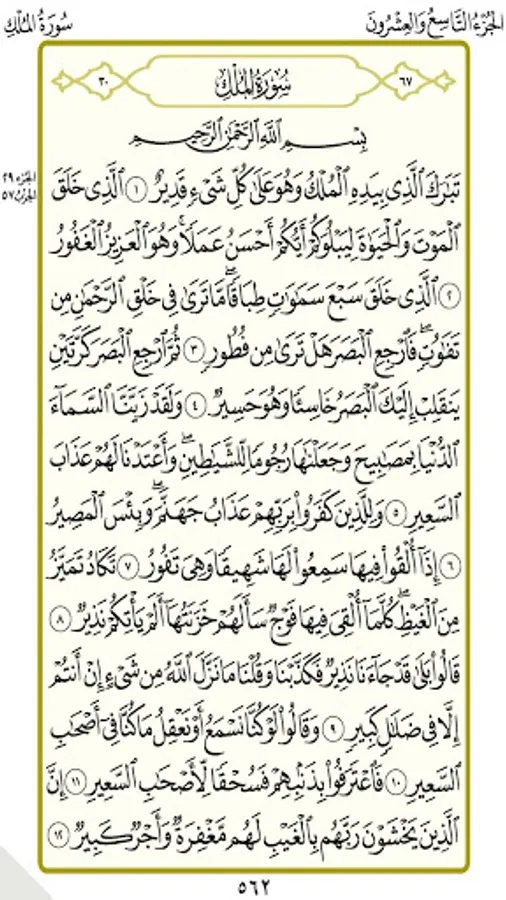 الجُزْءُ التَّاسِعُ وَالعِشْرُونَ سُورَةُ المُلْكِ
٦٧ سُورَةُ المُلْكِ ٣٠
بِسْمِ اللَّهِ الرَّحْمَٰنِ الرَّحِيمِ
تَبَٰرَكَ ٱلَّذِى بِيَدِهِ ٱلْمُلْكُ وَهُوَ عَلَىٰ كُلِّ شَىْءٍ قَدِيرٌ ١ ٱلَّذِى خَلَقَ
الجزء ٢٩
الحزب ٥٧
ٱلْمَوْتَ وَٱلْحَيَوٰةَ لِيَبْلُوَكُمْ أَيُّكُمْ أَحْسَنُ عَمَلًا ۚ وَهُوَ ٱلْعَزِيزُ ٱلْغَفُورُ
٢ ٱلَّذِى خَلَقَ سَبْعَ سَمَٰوَٰتٍ طِبَاقًا ۖ مَّا تَرَىٰ فِى خَلْقِ ٱلرَّحْمَٰنِ مِن
تَفَٰوُتٍ ۖ فَٱرْجِعِ ٱلْبَصَرَ هَلْ تَرَىٰ مِن فُطُورٍ ٣ ثُمَّ ٱرْجِعِ ٱلْبَصَرَ كَرَّتَيْنِ
يَنقَلِبْ إِلَيْكَ ٱلْبَصَرُ خَاسِئًا وَهُوَ حَسِيرٌ ٤ وَلَقَدْ زَيَّنَّا ٱلسَّمَآءَ
ٱلدُّنْيَا بِمَصَٰبِيحَ وَجَعَلْنَٰهَا رُجُومًا لِّلشَّيَٰطِينِ ۖ وَأَعْتَدْنَا لَهُمْ عَذَابَ
ٱلسَّعِيرِ ٥ وَلِلَّذِينَ كَفَرُوا۟ بِرَبِّهِمْ عَذَابُ جَهَنَّمَ ۖ وَبِئْسَ ٱلْمَصِيرُ
٦ إِذَآ أُلْقُوا۟ فِيهَا سَمِعُوا۟ لَهَا شَهِيقًا وَهِىَ تَفُورُ ٧ تَكَادُ تَمَيَّزُ
مِنَ ٱلْغَيْظِ ۖ كُلَّمَآ أُلْقِىَ فِيهَا فَوْجٌ سَأَلَهُمْ خَزَنَتُهَآ أَلَمْ يَأْتِكُمْ نَذِيرٌ ٨
قَالُوا۟ بَلَىٰ قَدْ جَآءَنَا نَذِيرٌ فَكَذَّبْنَا وَقُلْنَا مَا نَزَّلَ ٱللَّهُ مِن شَىْءٍ إِنْ أَنتُمْ
إِلَّا فِى ضَلَٰلٍ كَبِيرٍ ٩ وَقَالُوا۟ لَوْ كُنَّا نَسْمَعُ أَوْ نَعْقِلُ مَا كُنَّا فِىٓ أَصْحَٰبِ
ٱلسَّعِيرِ ١٠ فَٱعْتَرَفُوا۟ بِذَنۢبِهِمْ فَسُحْقًا لِّأَصْحَٰبِ ٱلسَّعِيرِ ١١ إِنَّ
ٱلَّذِينَ يَخْشَوْنَ رَبَّهُم بِٱلْغَيْبِ لَهُم مَّغْفِرَةٌ وَأَجْرٌ كَبِيرٌ ١٢
٥٦٢